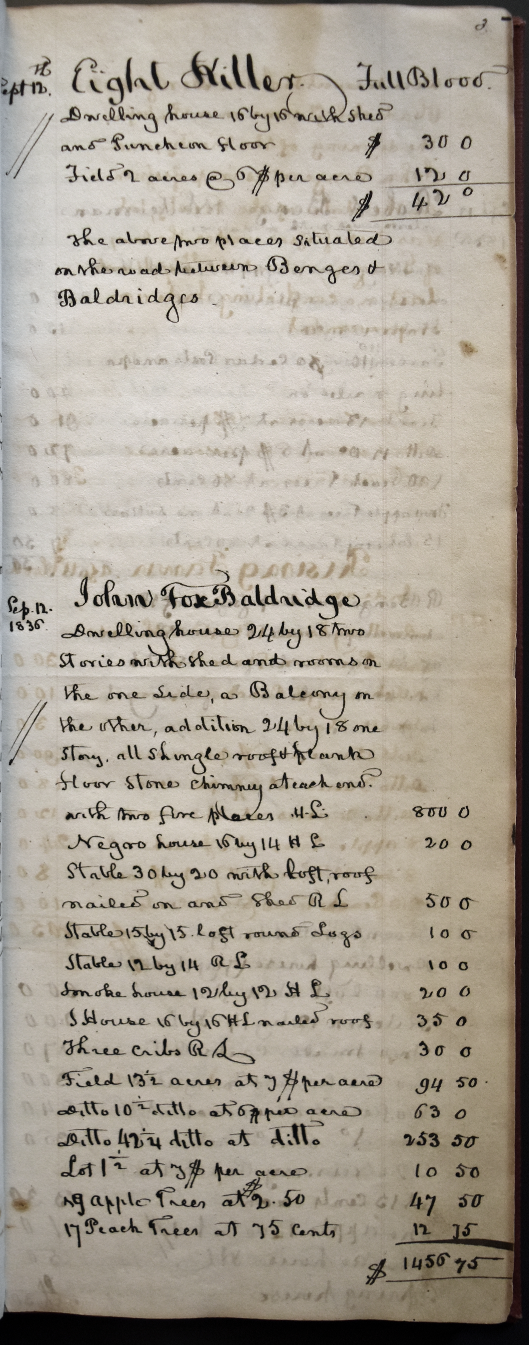 3
Sept 12th. Eight Killer. Full Blood.
Dwelling house 16 by 16 with shed
and Puncheon floor $ 30 0
Field 2 acres @ 6$ per acre 12 0
$ 42 0
The above two places situated
on the road between Benges &
Baldridges.
Sep. 12. 1836. John Fox Baldridge
Dwelling house 24 by 18 two
stories with shed and rooms on
the one side, a Balcony on
the other, addition 24 by 18 one
story, all shingle roof & plank
floor stone chimney at each end.
with two fire places H.L 800 0
Negro house 16 by 14 H L 20 0
Stable 30 by 20 with loft, roof
nailed on and shed R L 50 0
Stable 15 by 15 loft round Logs 10 0
Stable 12 by 14 R L 10 0
Smoke house 12 by 12 H L 20 0
House 16 by 16 HL nailed roof 35 0
Three cribs R L 30 0
Field 13 1/2 acres at 7$ per acre 94 50
Ditto 10 1/2 ditto at 6$ per acre 63 0
Ditto 42 1/4 ditto at ditto 253 50
Lot 1 1/2 at 7$ per acre 10 50
19 Apple Trees at $2.50 47 50
17 Peach Trees at 75 cents 12 75
$ 1456 75